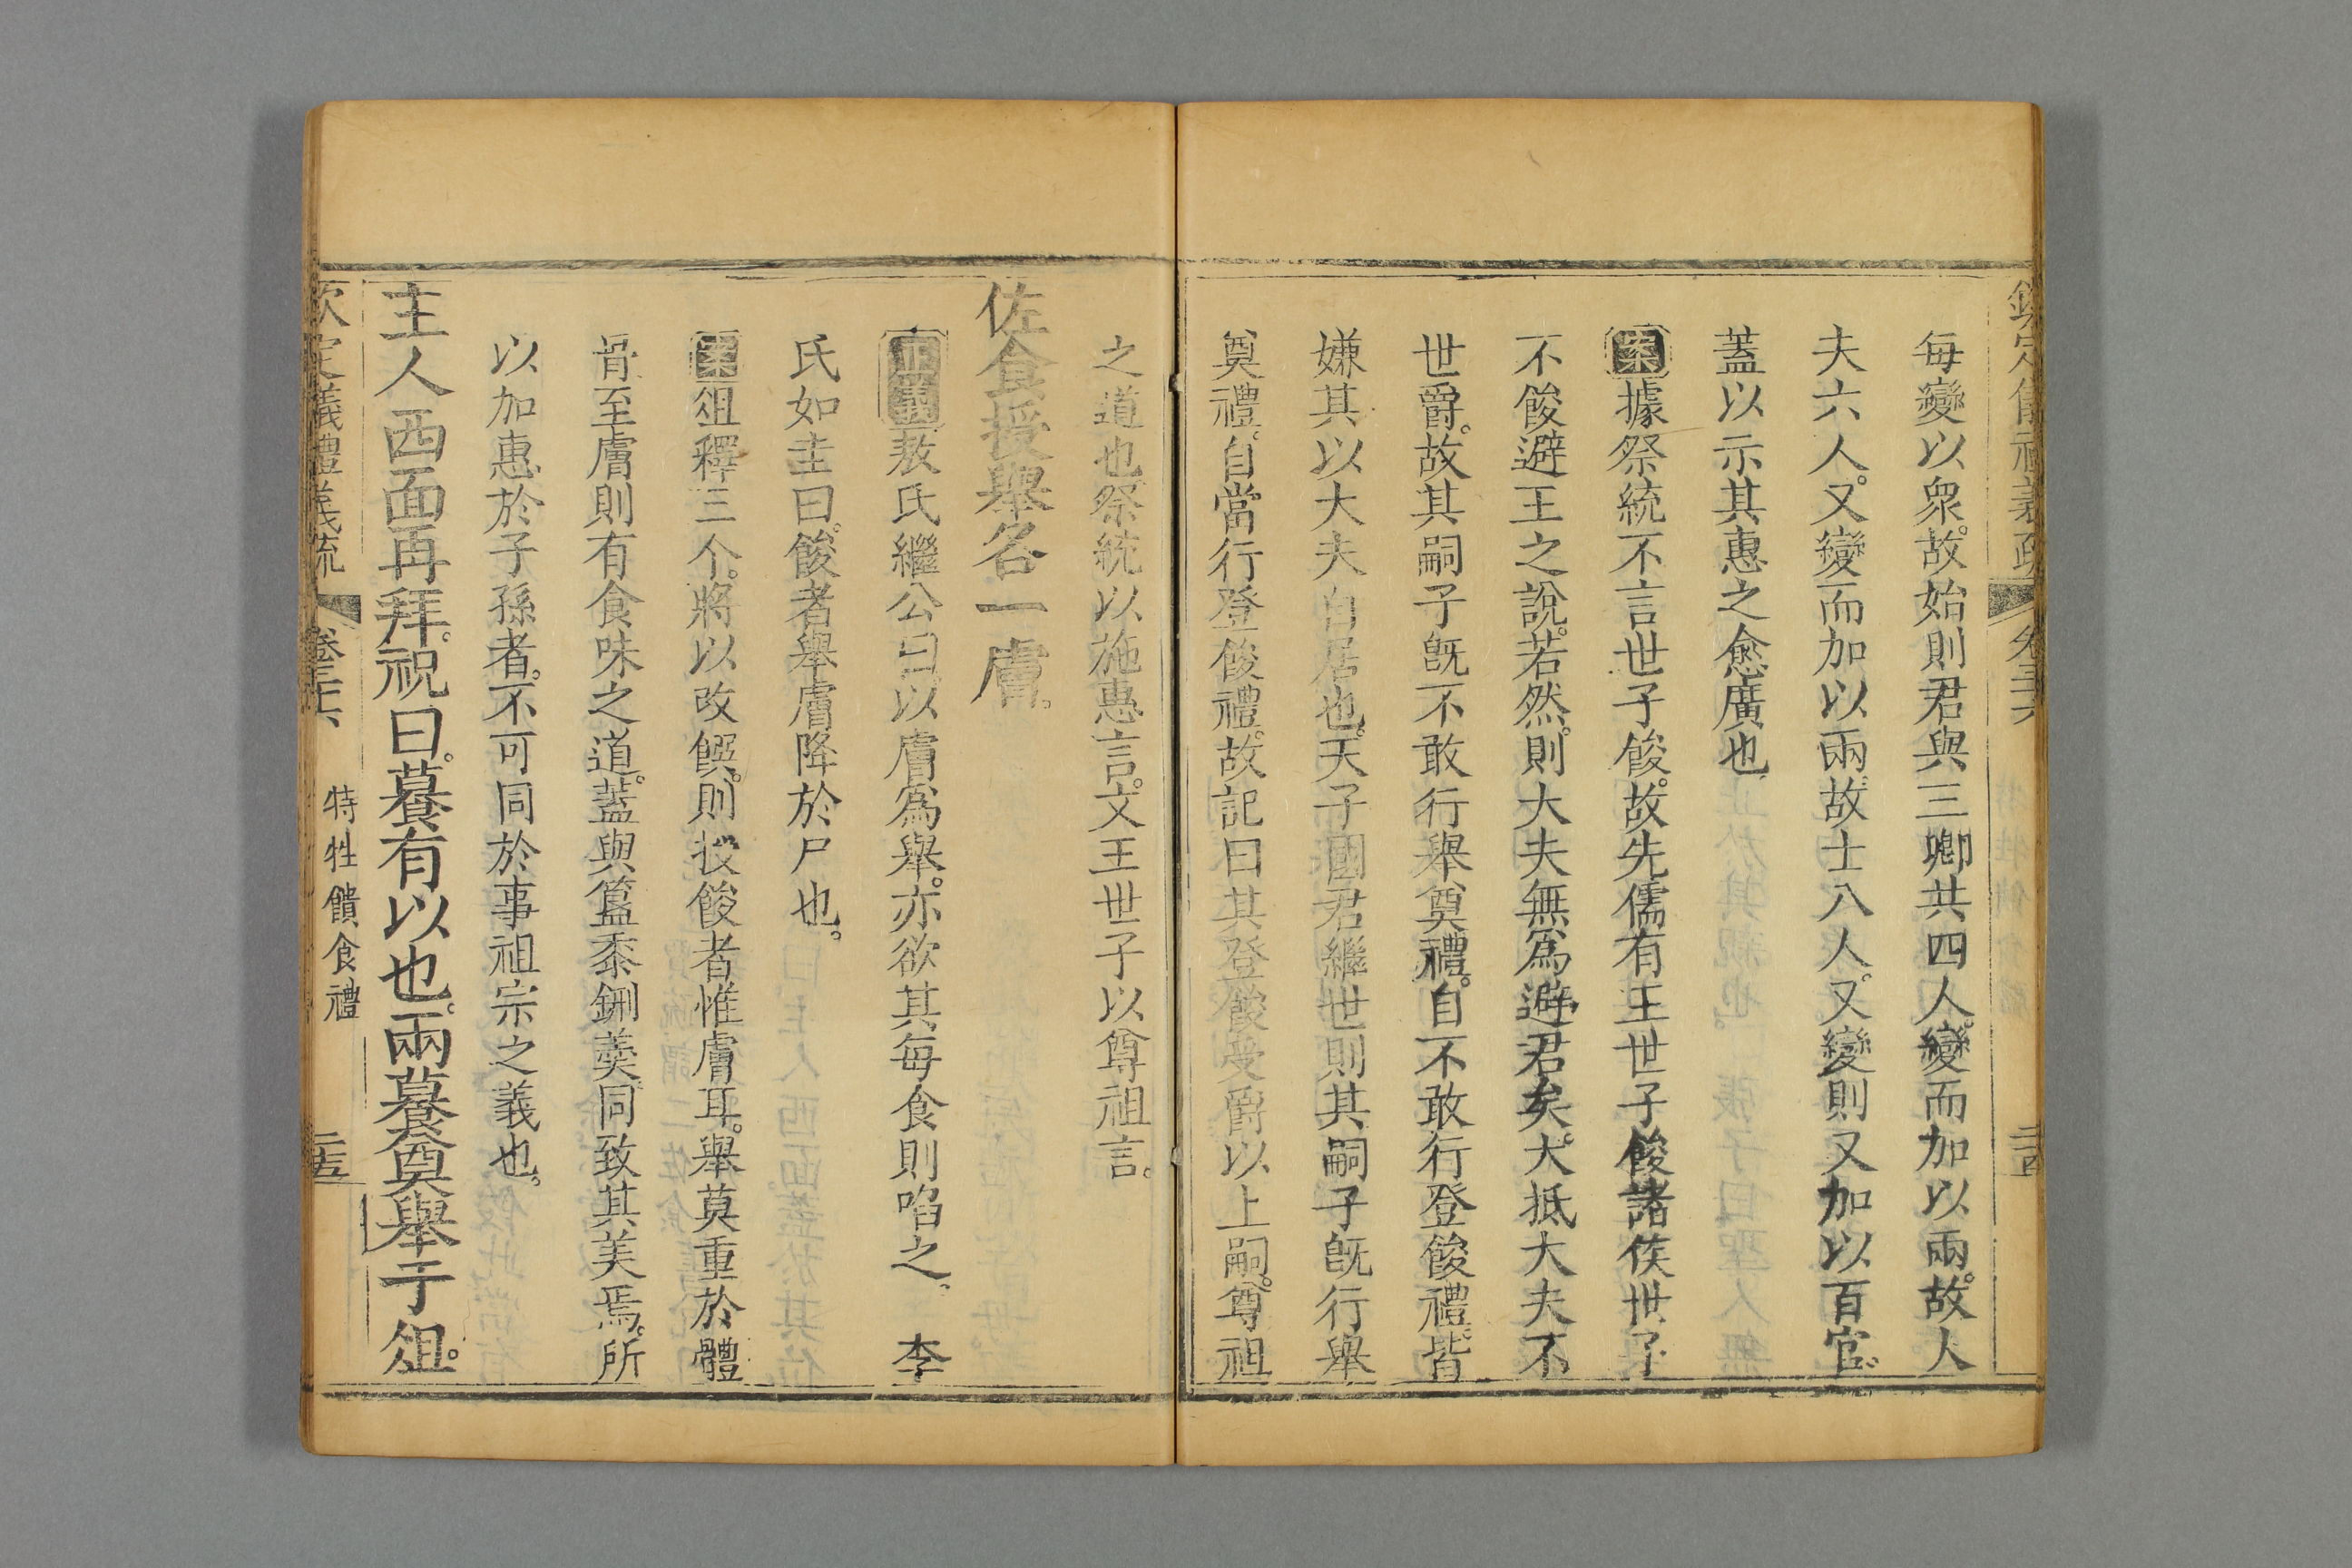 每變以衆。故始則君與三卿共四人。變而加以兩。故人
夫六人。又變而加以兩。故士八人。又變則又加以百官。
蓋以示其惠之愈廣也
案據祭統不言世子餕。故先儒有王世子餕諸侯世子
不餕避王之說。若然。則大夫無爲避君矣。大抵大夫不
世爵。故其嗣子旣不敢行舉奠禮。自不敢行登餕禮。皆
嫌其以大夫自居也。天子國君繼世則其嗣子旣行舉
奠禮。自當行登餕禮。故記曰其登餕受爵以上嗣。尊祖
之道也祭統以施惠言。文王世子以尊祖言。
佐食授舉各一膚。
正義敖氏繼公曰以膚爲舉。亦欲其每食則啗之。 李
氏如圭曰。餕者舉膚降於尸也。
案俎釋三个。將以改饌。則授餕者惟膚耳。舉莫重於體
骨至膚則有食味之道。蓋與簋黍鉶羹同致其美焉。所
以加惠於子孫者。不可同於事祖宗之義也。
主人西面再拜。祝曰。䉵有以也。兩䉵奠舉于俎。
欽定儀禮義疏 卷三十六 特牲饋食禮 二十五